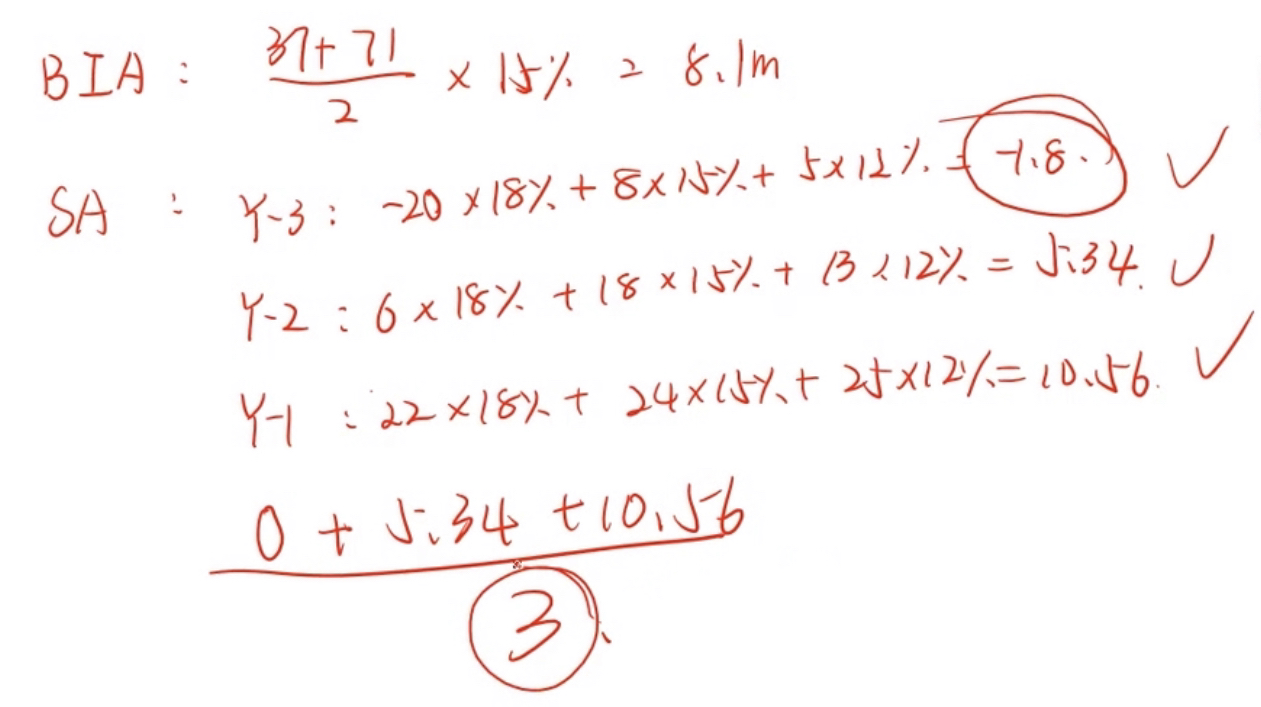 BIA : (37+71)/2 × 15% = 8.1m
SA : Y-3 : -20 × 18% + 8×15% + 5×12% = -1.8.✓
Y-2 : 6 × 18% + 18 × 15% + 13 × 12% = 5.34. ✓
Y-1 : 22 × 18% + 24×15% + 25×12% = 10.56. ✓
0 + 5.34 + 10.56
3